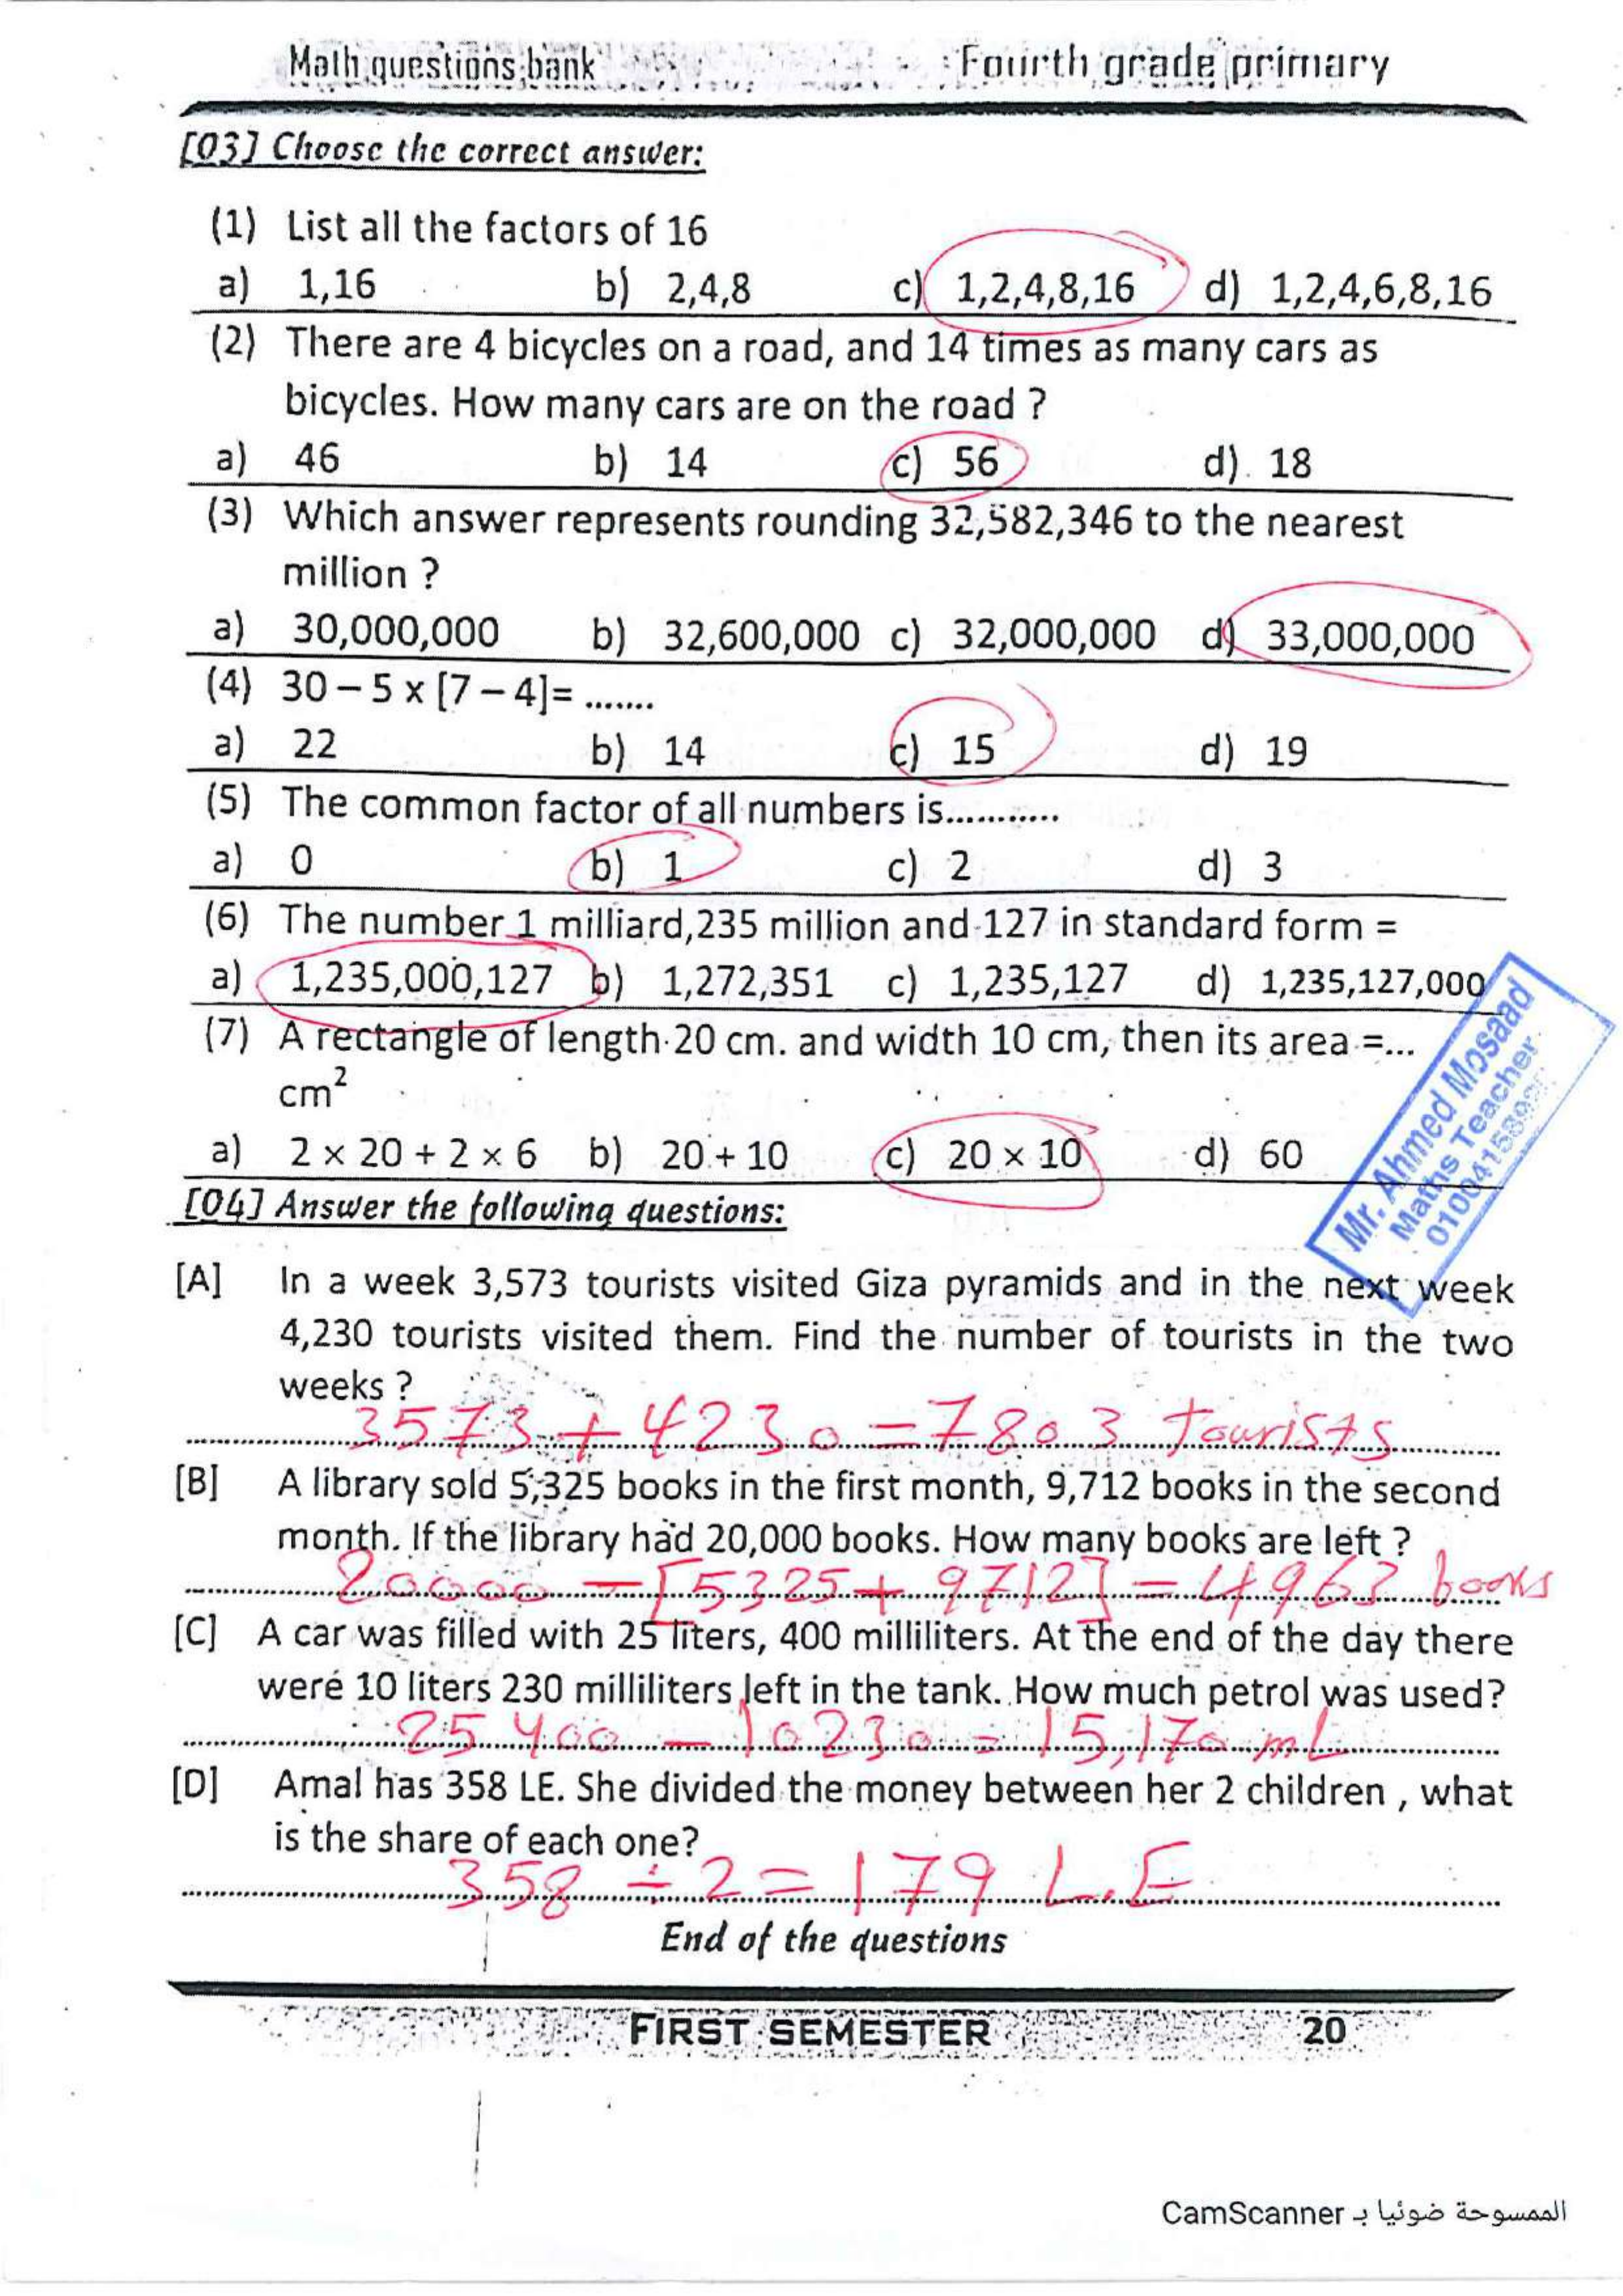 Math questions bank Fourth grade primary
[03] Choose the correct answer:
(1) List all the factors of 16
a) 1,16 b) 2,4,8 c) 1,2,4,8,16 d) 1,2,4,6,8,16
(2) There are 4 bicycles on a road, and 14 times as many cars as
bicycles. How many cars are on the road ?
a) 46 b) 14 c) 56 d) 18
(3) Which answer represents rounding 32,582,346 to the nearest
million ?
a) 30,000,000 b) 32,600,000 c) 32,000,000 d) 33,000,000
(4) 30 – 5 x [7 – 4]= .......
a) 22 b) 14 c) 15 d) 19
(5) The common factor of all numbers is...........
a) 0 b) 1 c) 2 d) 3
(6) The number 1 milliard,235 million and 127 in standard form =
a) 1,235,000,127 b) 1,272,351 c) 1,235,127 d) 1,235,127,000
(7) A rectangle of length 20 cm. and width 10 cm, then its area =...
cm²
a) 2 × 20 + 2 × 6 b) 20 + 10 c) 20 × 10 d) 60
Mr. Ahmed Mosaad
Maths Teacher
[04] Answer the following questions:
[A] In a week 3,573 tourists visited Giza pyramids and in the next week
4,230 tourists visited them. Find the number of tourists in the two
weeks ?
3573 + 4230 = 7803 tourists
[B] A library sold 5,325 books in the first month, 9,712 books in the second
month. If the library had 20,000 books. How many books are left ?
20000 – [5325 + 9712] = 4963 books
[C] A car was filled with 25 liters, 400 milliliters. At the end of the day there
were 10 liters 230 milliliters left in the tank. How much petrol was used?
25 400 – 10230 = 15,170 mL
[D] Amal has 358 LE. She divided the money between her 2 children , what
is the share of each one?
358 ÷ 2 = 179 L.E
End of the questions
FIRST SEMESTER 20
الممسوحة ضوئيا بـ CamScanner